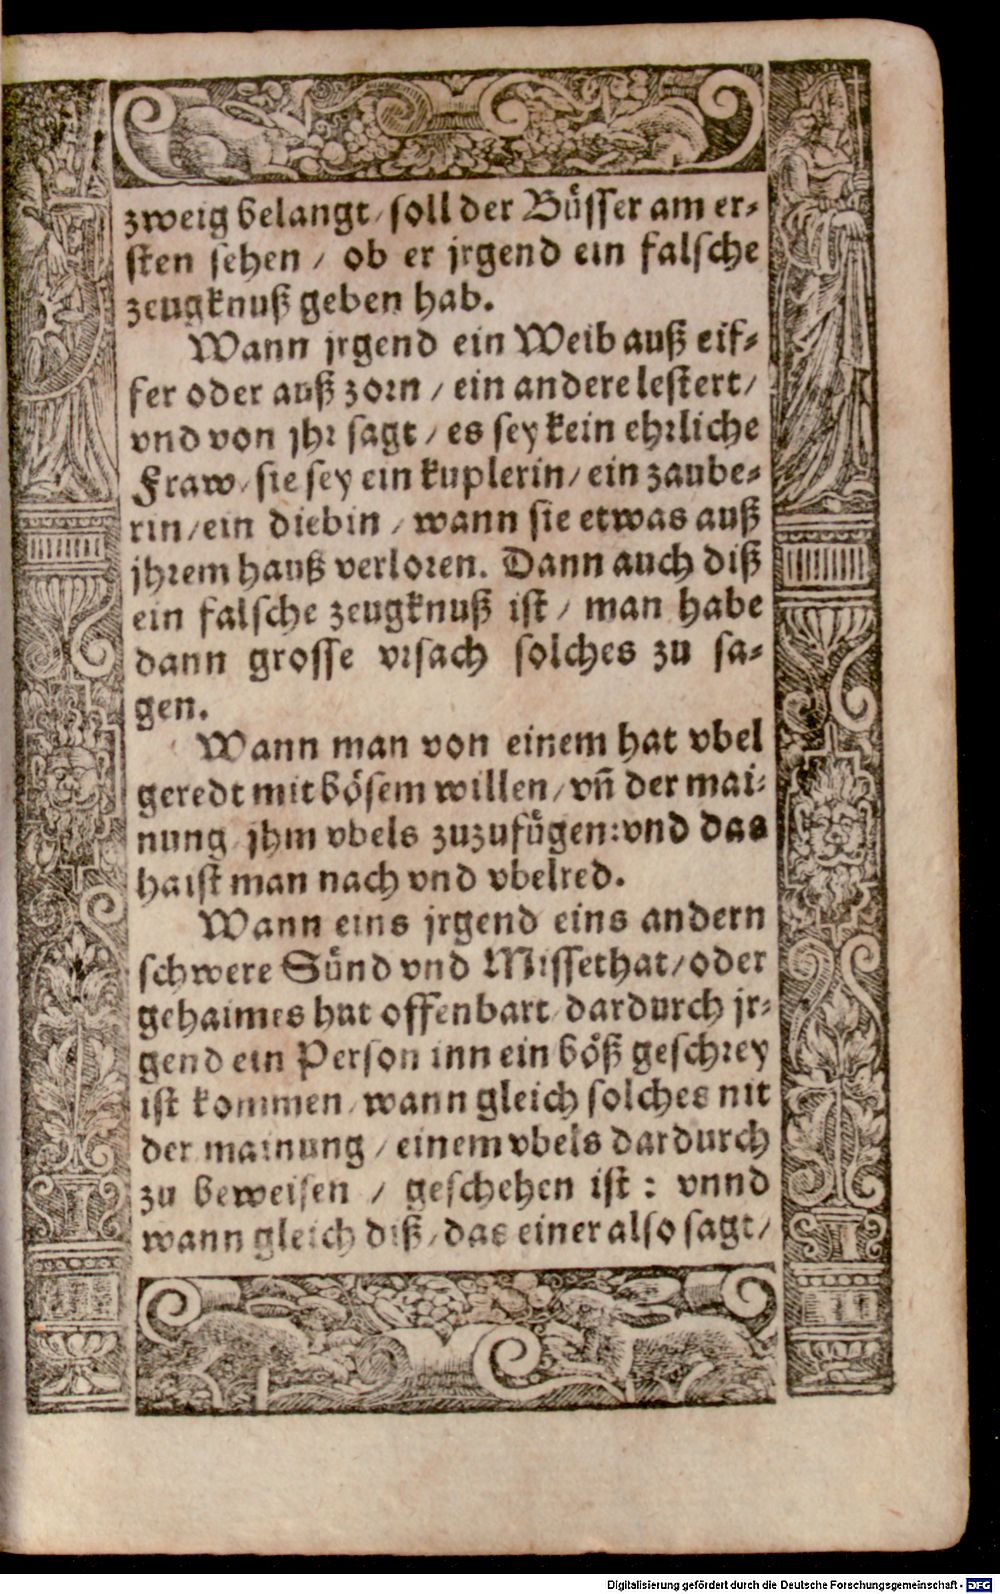 zweig belangt / soll der Büsser am er⸗
sten sehen / ob er jrgend ein falsche
zeugknuß geben hab.
Wann jrgend ein Weib auß eif⸗
fer oder auß zorn / ein andere lestert /
vnd von jhr sagt / es sey kein ehrliche
Fraw / sie sey ein kuplerin / ein zaube⸗
rin / ein diebin / wann sie etwas auß
jhrem hauß verloren. Dann auch diß
ein falsche zeugknuß ist / man habe
dann grosse vrsach solches zu sa⸗
gen.
Wann man von einem hat vbel
geredt mit bösem willen / vn̄ der mai⸗
nung jhm vbels zuzufügen: vnd das
haist man nach vnd vbelred.
Wann eins jrgend eins andern
schwere Sünd vnd Missethat / oder
gehaimes hat offenbart / dardurch jr⸗
gend ein Person inn ein böß geschrey
ist kommen / wann gleich solches nit
der mainung / einem vbels dardurch
zu beweisen / geschehen ist : vnnd
wann gleich diß / das einer also sagt /
Digitalisierung gefördert durch die Deutsche Forschungsgemeinschaft - DFG